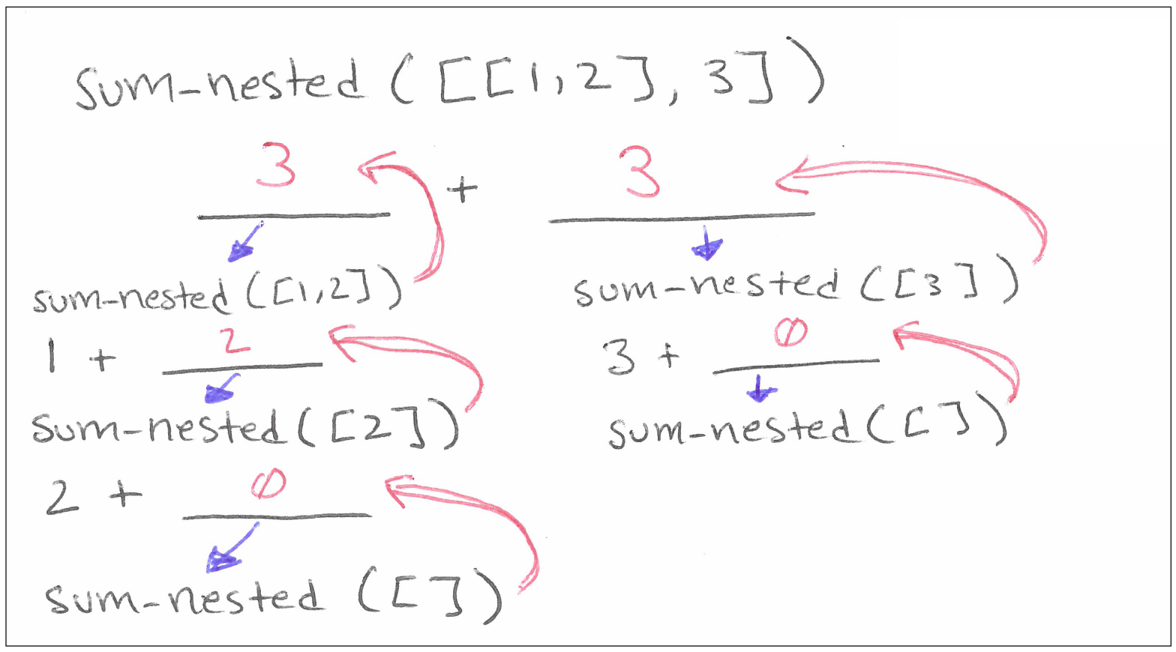 sum-nested([[1,2], 3])
3 + 3
sum-nested([1,2])
1 + 2
sum-nested([2])
2 + 0
sum-nested([])
sum-nested([3])
3 + 0
sum-nested([])